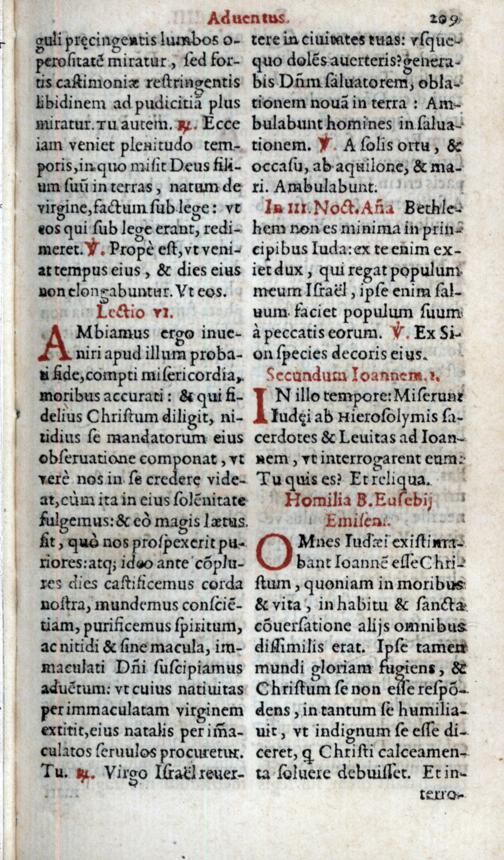 Aduentus. 209
guli pręcingentis lumbos o-
perositatē miratur, sed for-
tis castimoniæ restringentis
libidinem ad pudicitiā plus
miratur. Tu autem. ℟. Ecce
iam veniet plenitudo tem-
poris, in quo misit Deus fili-
um suū in terras, natum de
virgine, factum sub lege: vt
eos qui sub lege erant, redi-
meret. ℣. Propè est, vt veni-
at tempus eius, & dies eius
non elongabuntur. Vt eos.
Lectio VI.
AMbiamus ergo inue-
niri apud illum proba-
ti fide, compti misericordia,
moribus accurati: & qui fi-
delius Christum diligit, ni-
tidius se mandatorum eius
obseruatione componat, vt
verè nos in se credere vide-
at, cùm ita in eius solēnitate
fulgemus: & eò magis lætus.
sit, quò nos prospexerit pu-
riores: atq; ideo ante cōplu-
res dies castificemus corda
nostra, mundemus consciē-
tiam, purificemus spiritum,
ac nitidi & sine macula, im-
maculati Dñi suscipiamus
aduētum: vt cuius natiuitas
per immaculatam virginem
extitit, eius natalis per im̄a-
culatos seruulos procuretur.
Tu. ℟. Virgo Israël reuer-
tere in ciuitates tuas: vsque-
quo dolēs auerteris? genera-
bis Dñm saluatorem, obla-
tionem nouā in terra: Am-
bulabunt homines in salua-
tionem. ℣. A solis ortu, &
occasu, ab aquilone, & ma-
ri. Ambulabunt.
In III. Noct. Aña Bethle-
hem non es minima in prin-
cipibus Iuda: ex te enim ex-
iet dux, qui regat populum
meum Israël, ipse enim sal-
uum faciet populum suum
à peccatis eorum. ℣. Ex Si-
on species decoris eius.
Secundum Ioannem. 1.
IN illo tempore: Miserunt
Iudęi ab Hierosolymis sa-
cerdotes & Leuitas ad Ioan-
nem, vt interrogarent eum:
Tu quis es? Et reliqua.
Homilia B. Eusebij
Emiseni.
OMnes Iudæi existima-
bant Ioannē esse Chri-
stum, quoniam in moribus
& vita, in habitu & sancta
cōuersatione alijs omnibus
dissimilis erat. Ipse tamen
mundi gloriam fugiens, &
Christum se non esse respō-
dens, in tantum se humilia-
uit, vt indignum se esse di-
ceret, q Christi calceamen-
ta soluere debuisset. Et in-
terro-